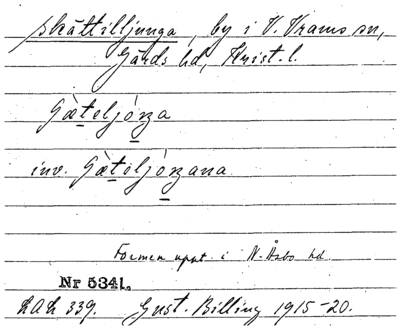 Skättilljunga, by i V. Vrams sn,
Gärds hd, Krist. l.
inv.
Formen uppt. i N. Åsbo hd
Nr 5341.
LAL 339. Gust. Billing 1915-20.